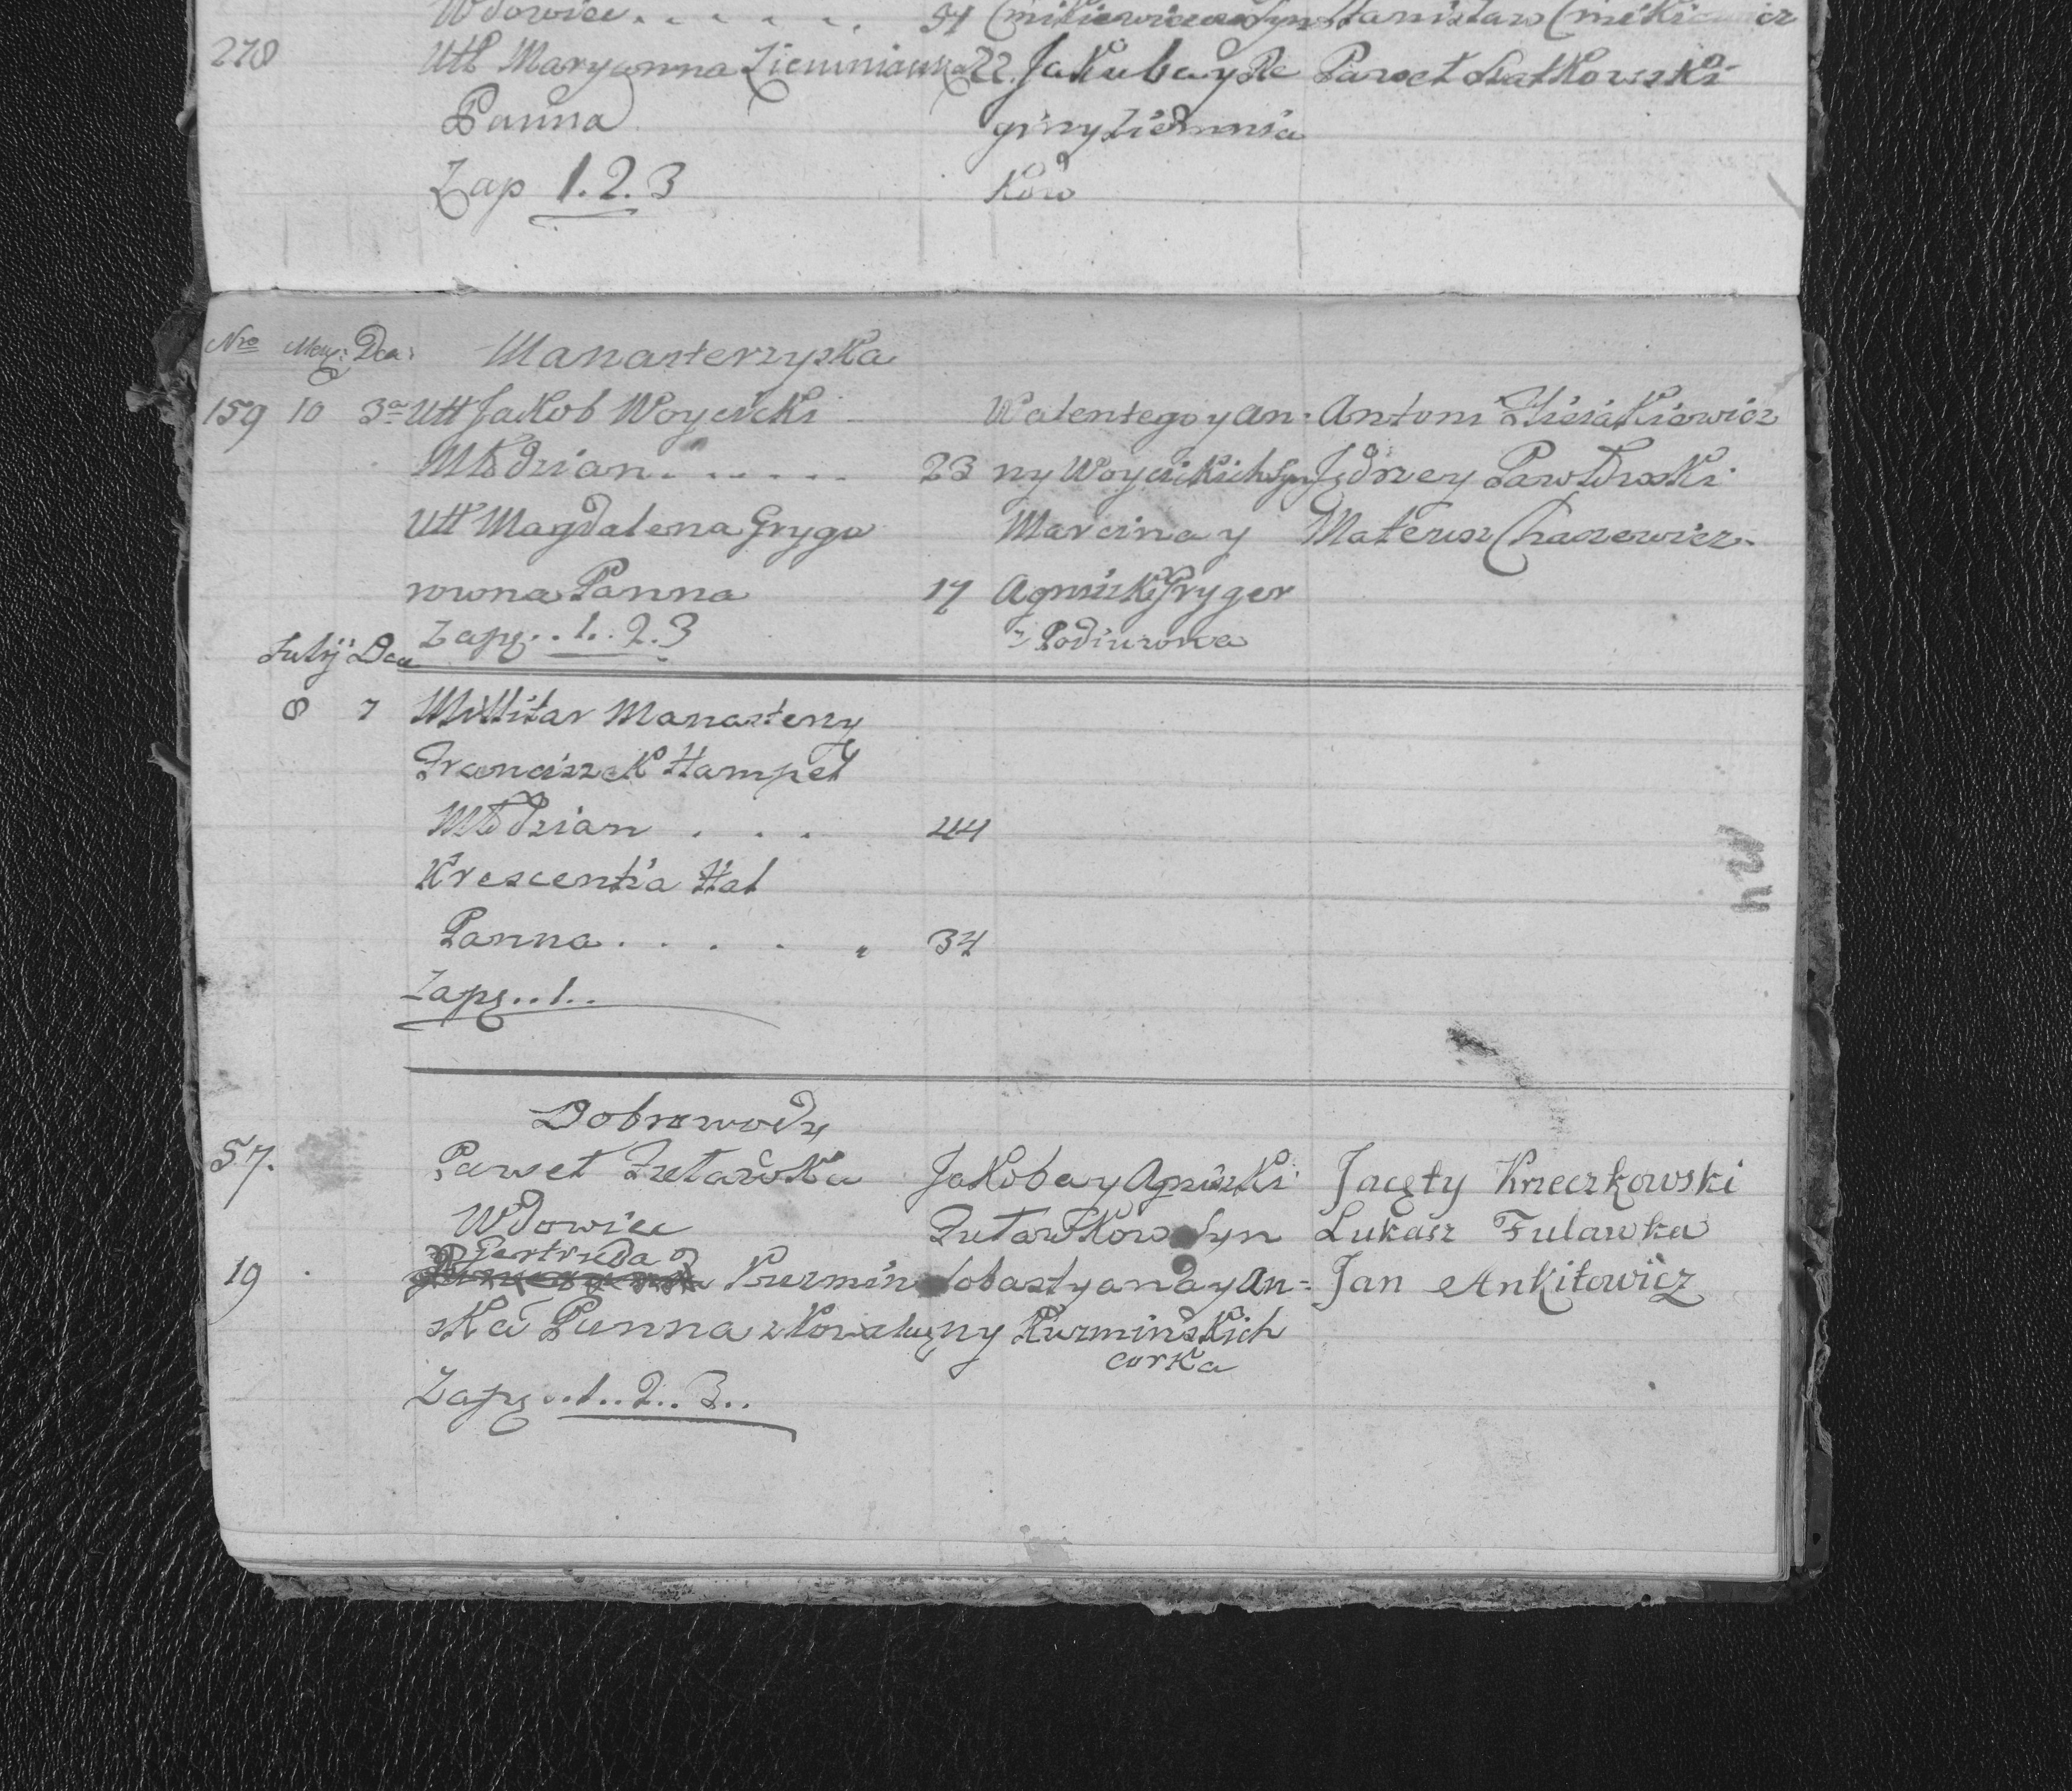 Wdowiec . . . . . 54 Stanisław
278 Utt Maryanna Ziemnianka 22 Jakuba y Re Paweł Siatkowski
Panna giny Ziemnia
Zap 1. 2. 3 ków
Nro Dca: Manasterzyska
159 10 3a Utt Jakob Woycicki Walentego y An:  Antoni
Młodzian . . . . . 23 ny Woycickich Syn Jędrzey Pawłowski
Utt Magdalena Grygo Marcina y Mateusz Chazewicz
rowna Panna 17 Agniszki Gryger
Zapę . . 1 . . 2 . 3 z
Julÿ Dca
8 7 Millitar Manasterzy
Franciszek Hampel
Młodzian . . . 44
Krescentia Hal
Panna . . . . " 34
Zapę . . 1 . .
Dobrowody
57. Paweł Fuławka Jakoba y Agniszki Jacęty Kreczkowski
Wdowiec Fuławków Syn Lukasz Fulawka
Gertruda
19 Kuzmin Sobastyana y An= Jan Ankiłowicz
ska Panna z ny Kuzminskich
corka
Zapę . . 1 . . 2 . . 3 . .